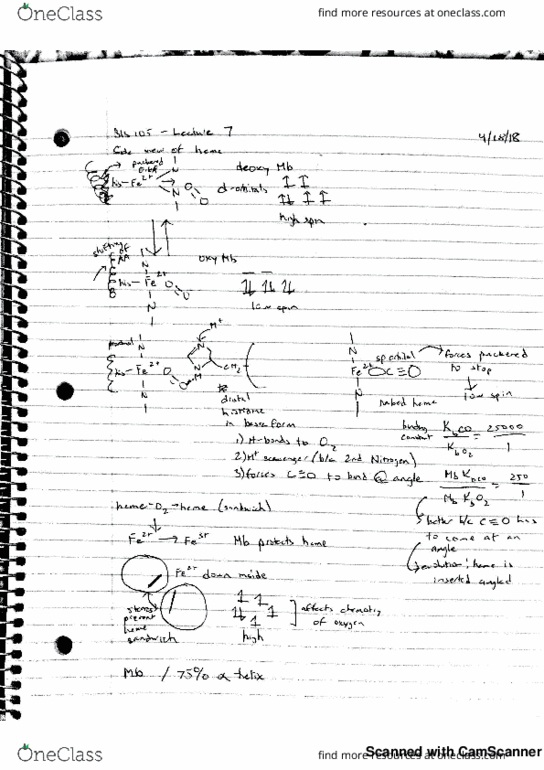 OneClass
find more resources at oneclass.com
BIS 105 - Lecture 7
4/18/18
Side view of heme
puckered
deoxy Mb
his-Fe2+
d-orbitals
high spin
oxy Mb
his-Fe2+
low spin
H+
his-Fe2+
CH2
distal
histidine
in base form
1) H-bonds to O2
2) H+ scavenger (b/c 2nd Nitrogen)
3) forces C≡O to bond @ angle
Fe2+ C≡O
sp orbital
forces puckered
to stop
low spin
naked heme
binding
constant
KbCO
KbO2
= 25000
1
Mb KbCO
Mb KbO2
= 250
1
better b/c C≡O has
to come at an
angle
evolution: heme is
inserted angled
heme-O2-heme (sandwich)
Fe2+ → Fe3+
Mb protects heme
Fe2+ down inside
prevent
heme
sandwich
high
affects chemistry
of oxygen
Mb / 75% α helix
OneClass
find more resources at oneclass.com
Scanned with CamScanner